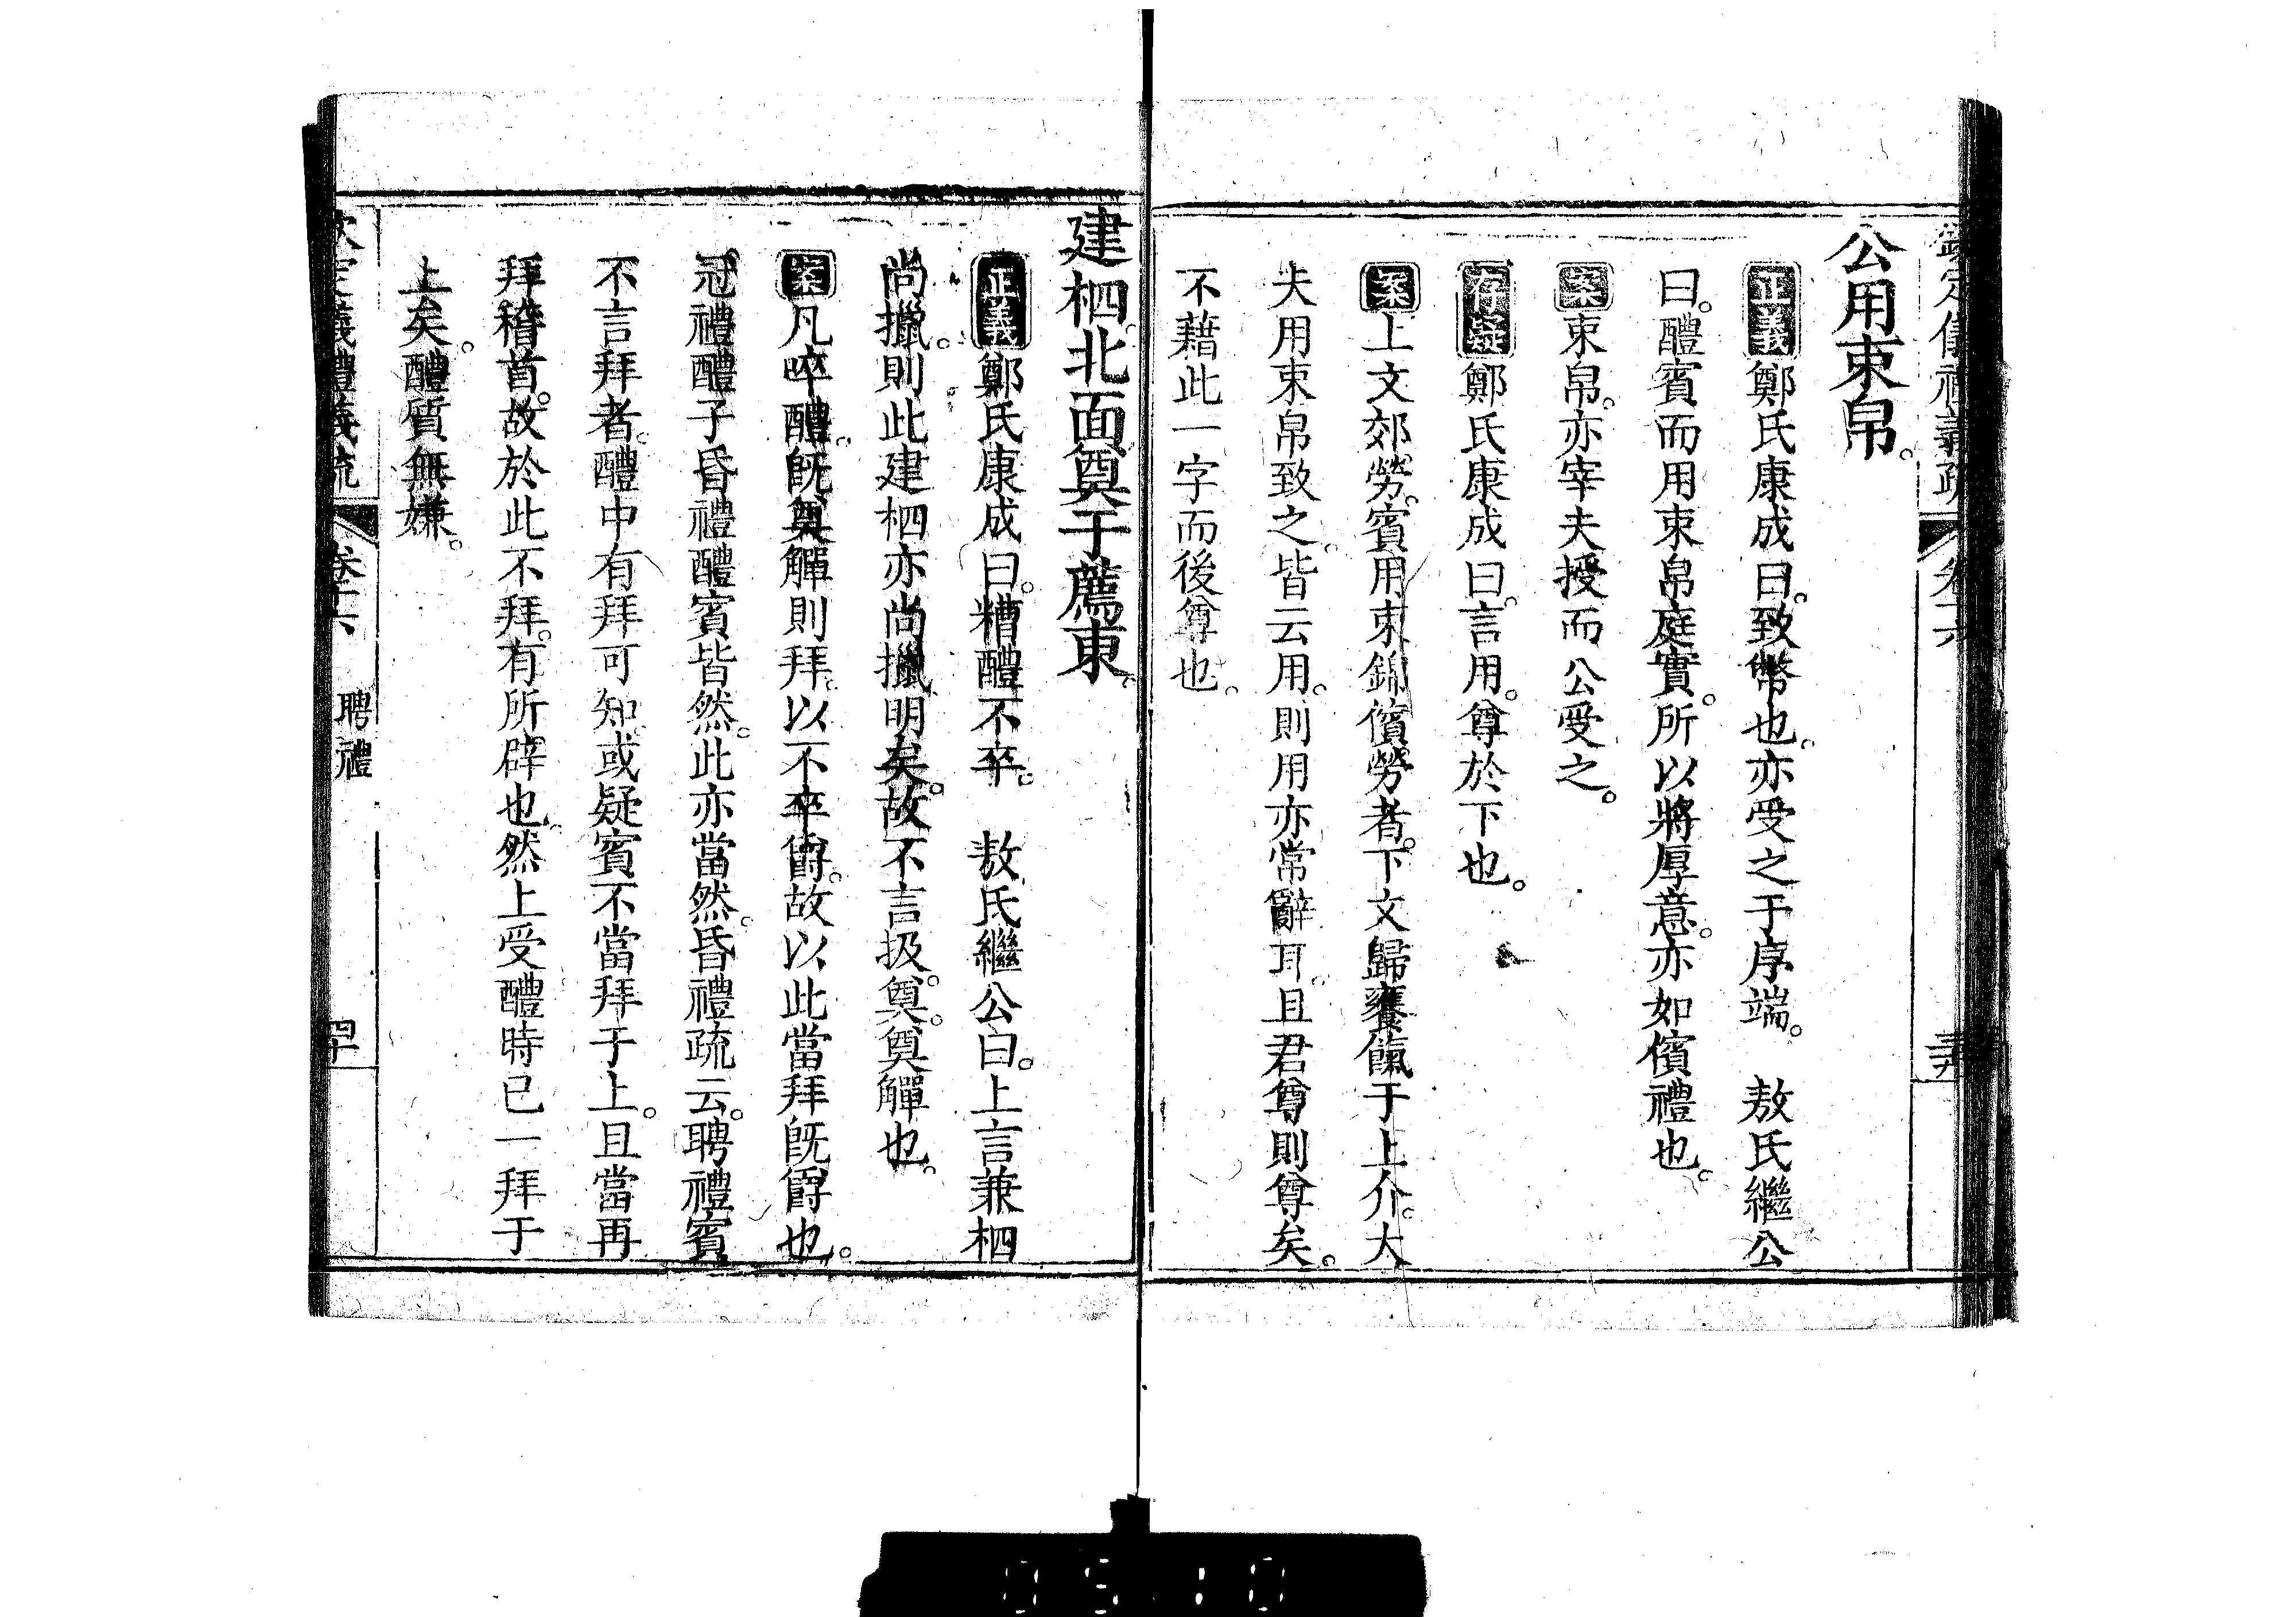 公用束帛。
正義鄭氏康成曰。致幣也。亦受之于序端。　敖氏繼公
曰。醴賓而用束帛庭實。所以將厚意。亦如儐禮也。
案束帛。亦宰夫授而公受之。
存疑鄭氏康成曰。言用。尊於下也。
案上文郊勞。賓用束錦儐勞者。下文歸饔餼于上介。大
夫用束帛致之。皆云用。則用亦常辭耳。且君尊則尊矣。
不藉此一字而後尊也。
建柶。北面奠于薦東。
正義鄭氏康成曰。糟醴不卒。　敖氏繼公曰。上言兼柶
尚擸。則此建柶亦尚擸明矣。故不言扱。奠。奠觶也。
案凡啐醴。旣奠觶則拜。以不卒爵。故以此當拜旣爵也。
冠禮醴子昏禮醴賓皆然。此亦當然。昏禮疏云。聘禮賓
不言拜者。醴中有拜可知。或疑賓不當拜于上。且當再
拜稽首。故於此不拜。有所辟也。然上受醴時已一拜于
上矣。醴質無嫌。
卷十六
聘禮
四十